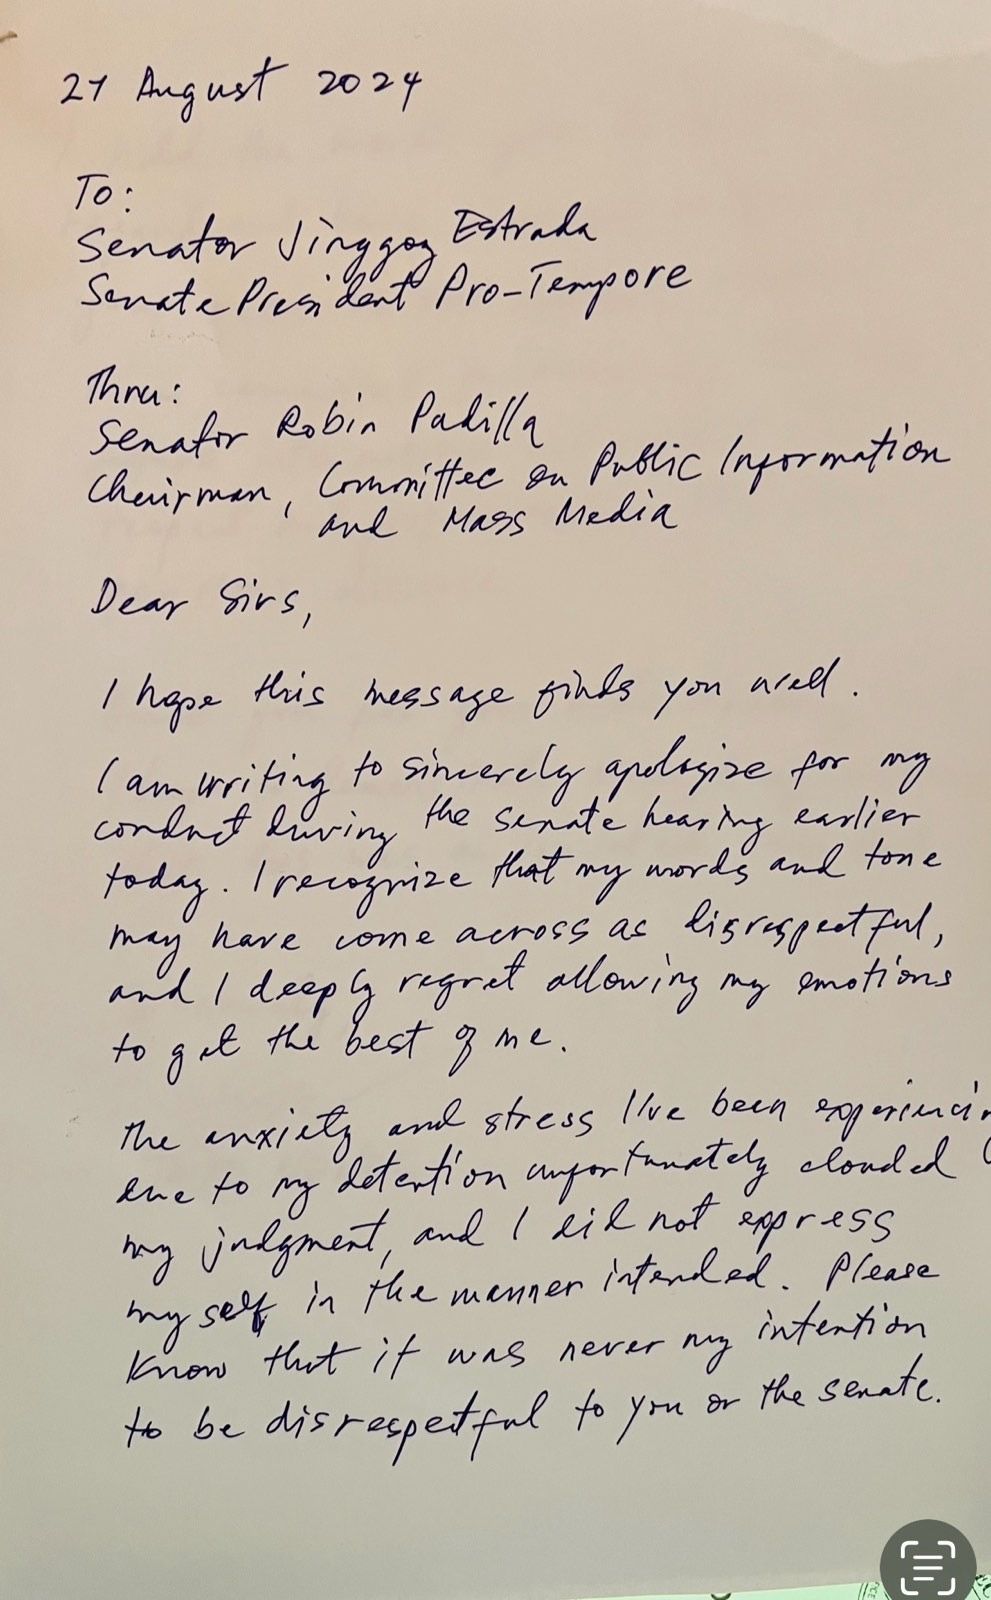 27 August 2024
To:
Senator Jinggoy Estrada
Senate President Pro-Tempore
Thru:
Senator Robin Padilla
Chairman, Committee on Public Information
and Mass Media
Dear Sirs,
I hope this message finds you well.
I am writing to sincerely apologize for my
conduct during the senate hearing earlier
today. I recognize that my words and tone
may have come across as disrespectful,
and I deeply regret allowing my emotions
to get the best of me.
The anxiety and stress I've been experiencin
due to my detention unfortunately clouded
my judgment, and I did not express
myself in the manner intended. Please
know that it was never my intention
to be disrespectful to you or the senate.